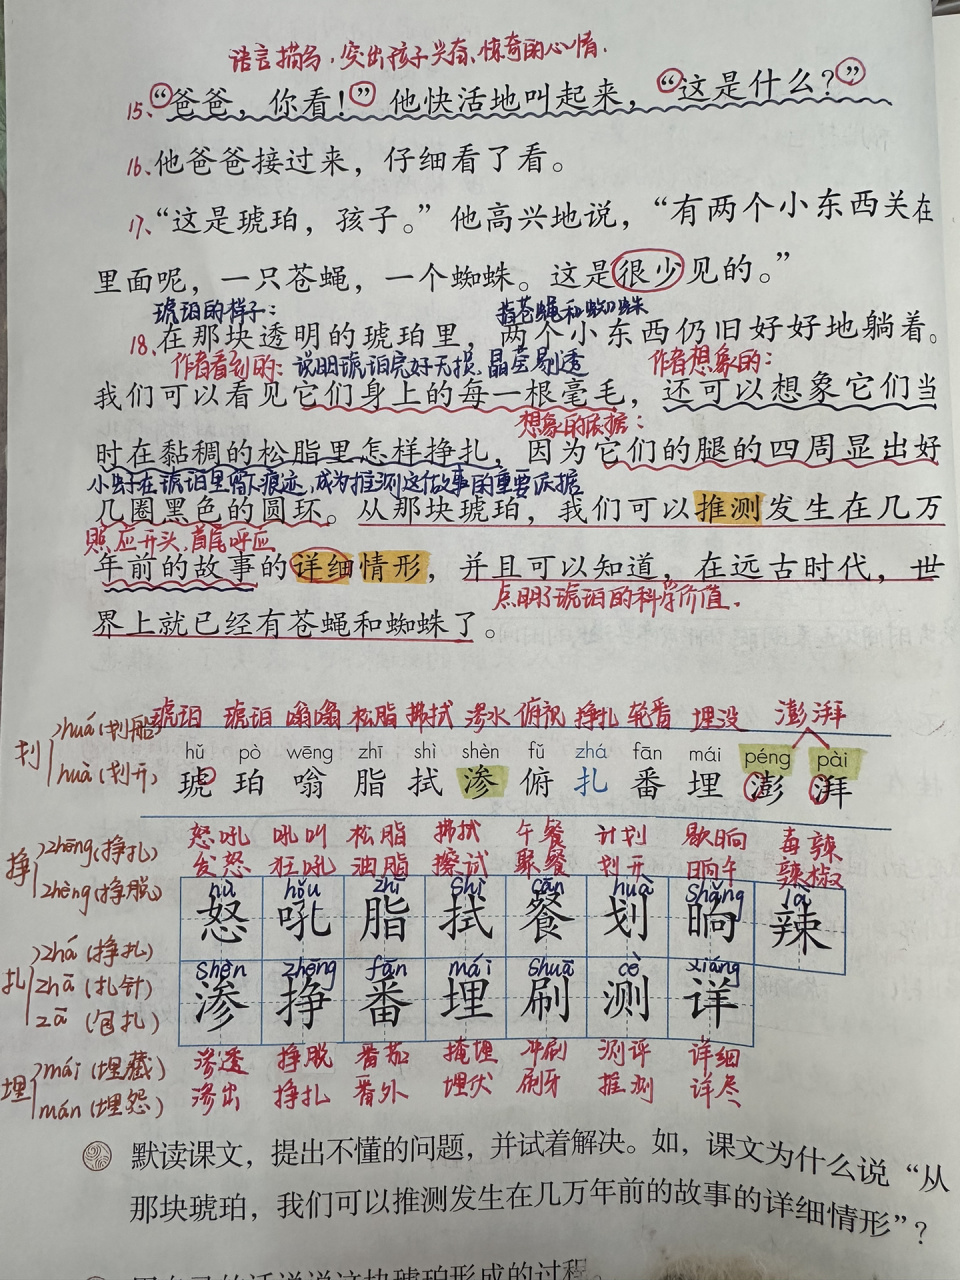 语言描写，突出孩子兴奋、惊奇的心情.
15、“爸爸，你看！”他快活地叫起来，“这是什么？”
16、他爸爸接过来，仔细看了看。
17、“这是琥珀，孩子。”他高兴地说，“有两个小东西关在
里面呢，一只苍蝇，一个蜘蛛。这是很少见的。”
琥珀的样子： 指苍蝇和蜘蛛
18.在那块透明的琥珀里，两个小东西仍旧好好地躺着。
作者看到的：说明琥珀完好无损、晶莹剔透 作者想象的：
我们可以看见它们身上的每一根毫毛，还可以想象它们当
想象的依据：
时在黏稠的松脂里怎样挣扎，因为它们的腿的四周显出好
小虫子在琥珀里留下痕迹，成为推测这个故事的重要依据
几圈黑色的圆环。从那块琥珀，我们可以推测发生在几万
照应开头，首尾呼应
年前的故事的详细情形，并且可以知道，在远古时代，世
点明了琥珀的科学价值.
界上就已经有苍蝇和蜘蛛了。
琥珀 琥珀 嗡嗡 松脂 拂拭 渗水 俯视 挣扎 轮番 埋没 澎湃
划 huá(划船)
huà(划开)
hǔ pò wēng zhī shì shèn fǔ zhá fān mái péng pài
琥 珀 嗡 脂 拭 渗 俯 扎 番 埋 澎 湃
怒吼 吼叫 松脂 拂拭 午餐 计划 歇晌 毒辣
发怒 狂吼 油脂 擦拭 聚餐 划开 晌午 辣椒
挣 zhēng(挣扎)
zhèng(挣脱)
nù hǒu zhī shì cān huà shǎng là
怒 吼 脂 拭 餐 划 晌 辣
扎 zhá(挣扎)
zhā(扎针)
zā(包扎)
shèn zhēng fān mái shuā cè xiáng
渗 挣 番 埋 刷 测 详
埋 mái(埋藏)
mán(埋怨)
渗透 挣脱 番茄 掩埋 冲刷 测评 详细
渗出 挣扎 番外 埋伏 刷牙 推测 详尽
默读课文，提出不懂的问题，并试着解决。如，课文为什么说“从
那块琥珀，我们可以推测发生在几万年前的故事的详细情形”？
用自己的话说说这块琥珀形成的过程。